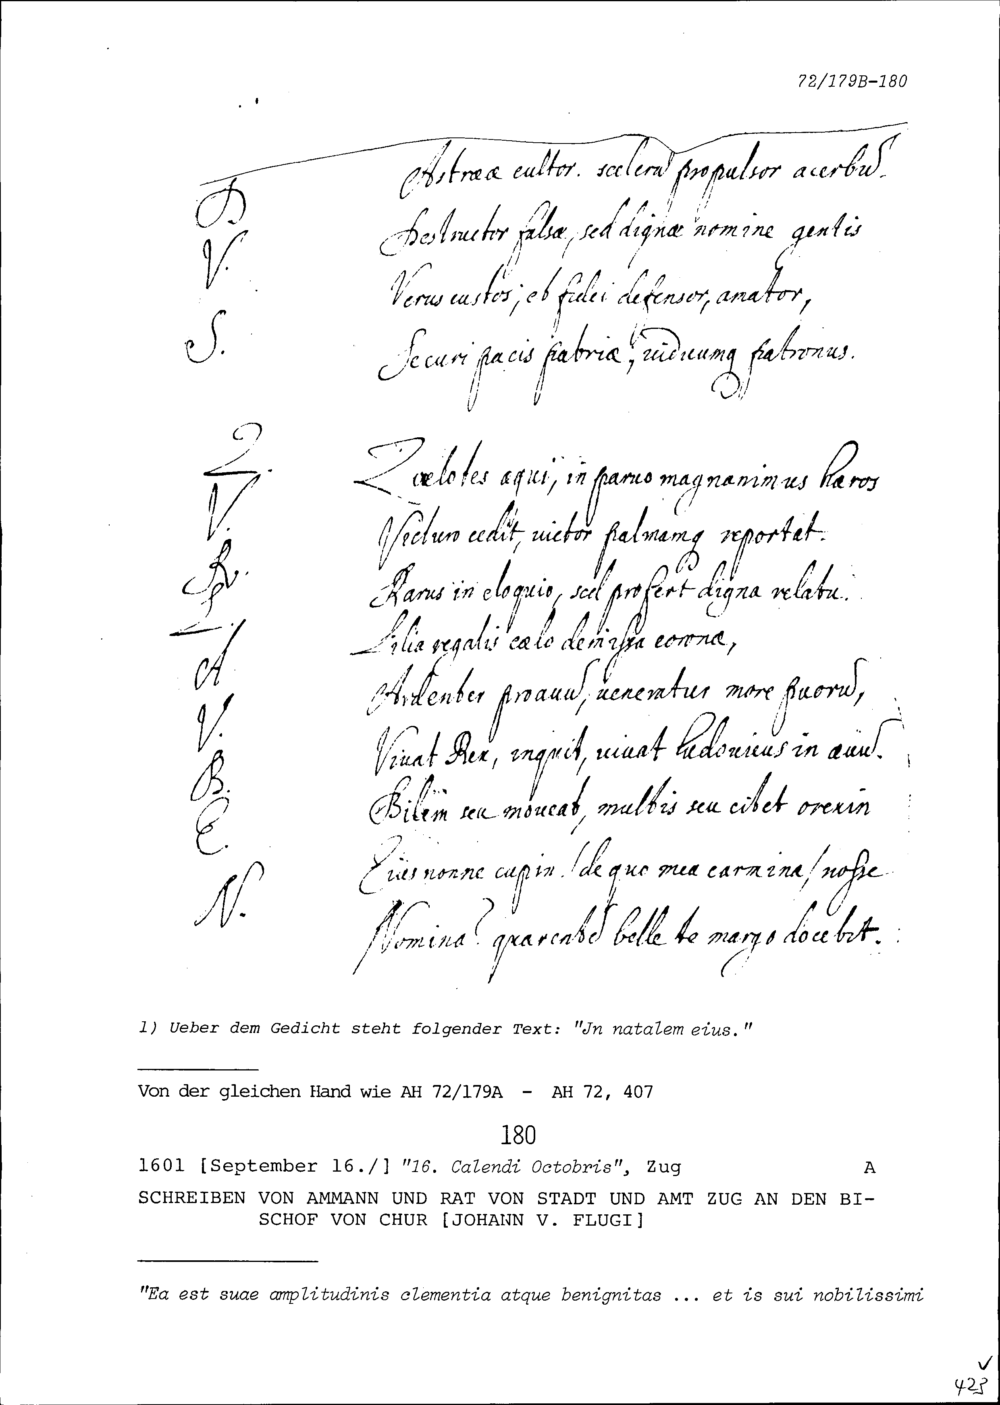 72/179B-180
Astrææ cultor. scelerũ propulsor acerbũ.
D. Destructor falsæ, sed dignæ nomine gentis
V. Verus custos; et fidei defensor, amator,
S. Securi pacis patriæ, uiduumq patronus.
Z. Zælotes æqui, in paruo magnanimus hæros
V. Victum cedit, uictor palmamq reportat.
R. Rarus in eloquio, sed profert digna relatu.
L. Lilia regalis cælo demissa coronæ,
A Ardenter proauũ, ueneratus more suorũ,
V. Viuat Rex, inquit, uiuat Ludouicus in æuũ.
B. Bilem seu moueat, multis seu citet orexin
E. Eius nonne cupin'/de quo mea carmina/nosse
N. Nomina? quærentẽ belle te margo docebit.
1) Ueber dem Gedicht steht folgender Text: "Jn natalem eius."
Von der gleichen Hand wie AH 72/179A - AH 72, 407
180
1601 [September 16./] "16. Calendi Octobris", Zug A
SCHREIBEN VON AMMANN UND RAT VON STADT UND AMT ZUG AN DEN BI-
SCHOF VON CHUR [JOHANN V. FLUGI]
"Ea est suae amplitudinis clementia atque benignitas ... et is sui nobilissimi
423